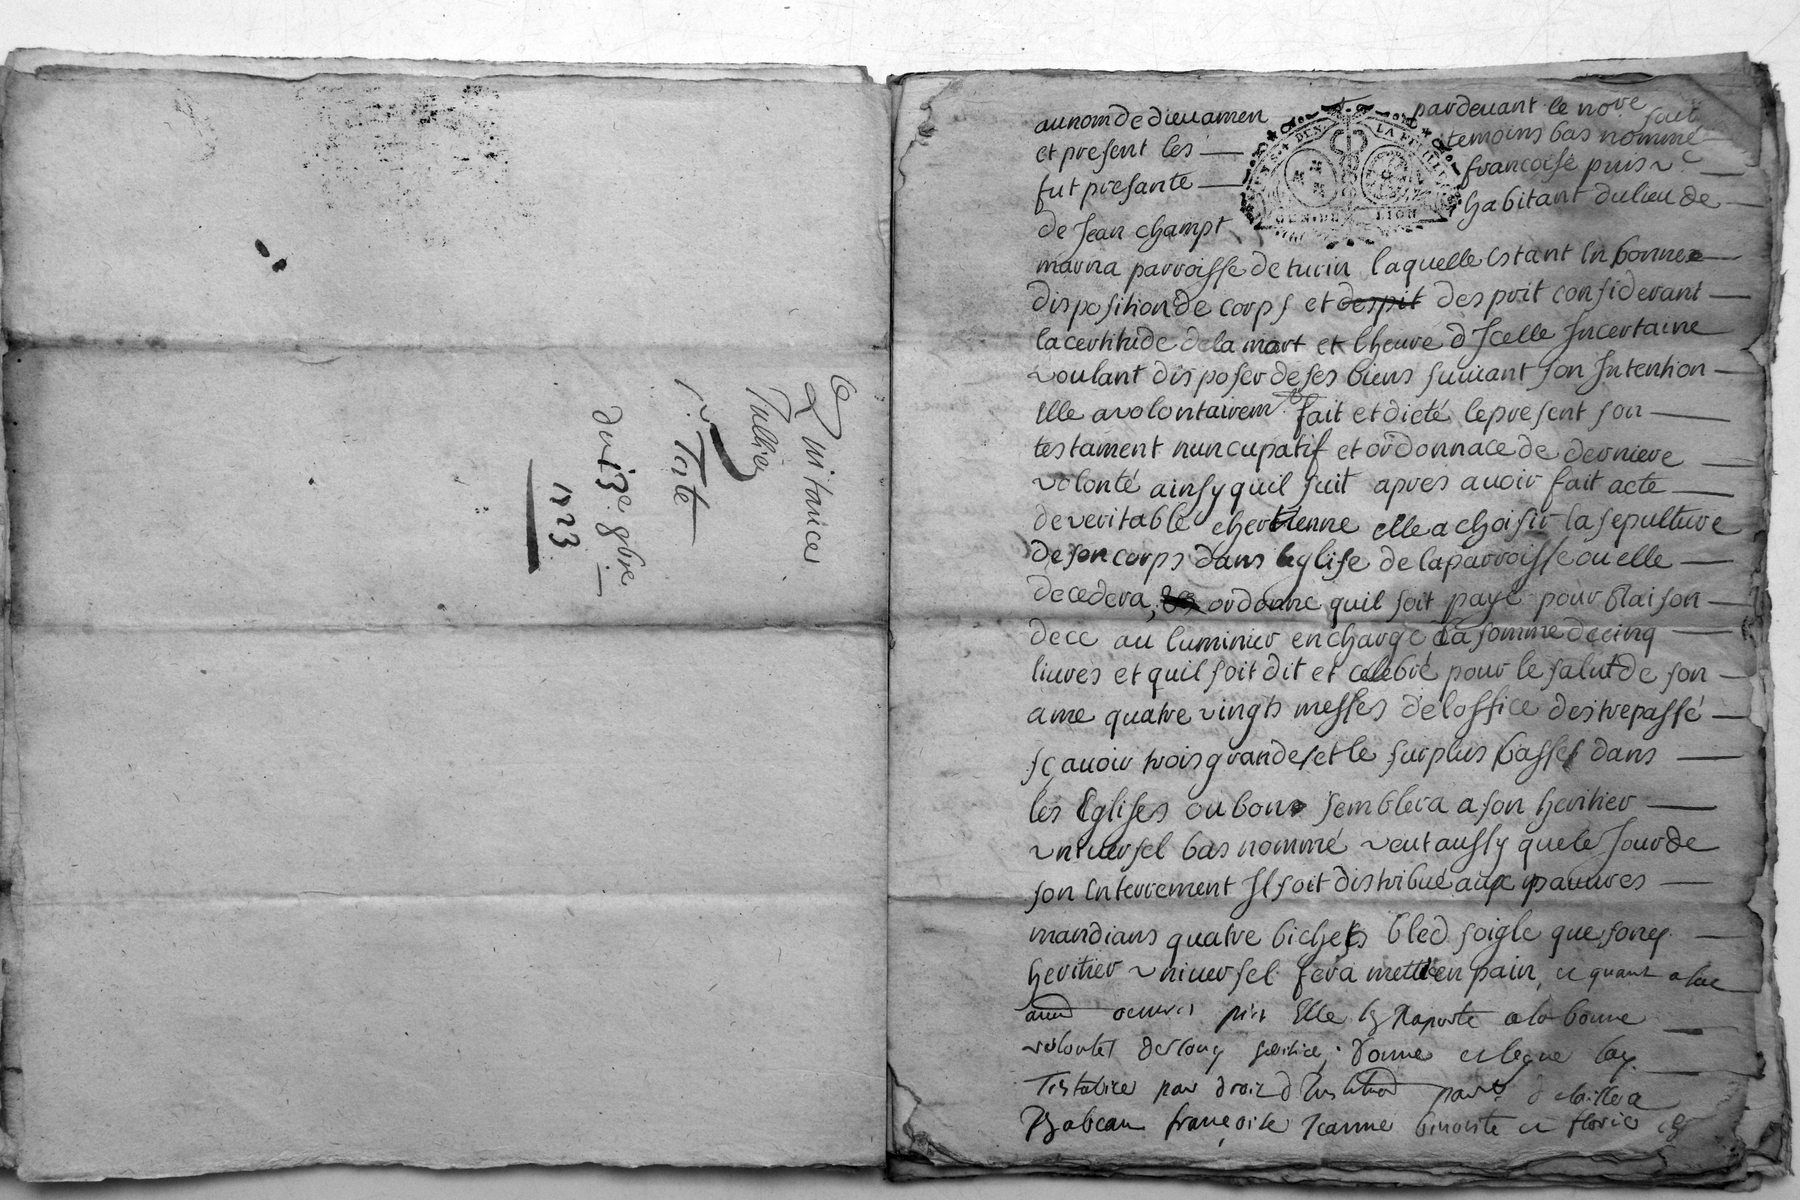 Quitances
Tullie
pr. Teste
du 13e 9bre
1723
au nom de dieu amen pardevant le nore
et present les temoins bas nommé fait
fut presante francoise puis
de Jean champt habitant du lieu de
marna parroisse de turin laquelle Estant En bonne
disposition de corps et despit desprit considerant
la certitude de la mort et lheure dIcelle Incertaine
voulant disposer de ses biens suivant son Intention
Elle a volontairemt fait et dicté le present son
testament nuncupatif et ordonnace de derniere
volonté ainsy quil suit apres avoir fait acte
de veritable chertienne elle a choisir la sepulture
de son corps dans leglise de la parroisse ou elle
decedera, ordonne quil soit payé pour Raison
de ce au luminier en charge la somme de cinq
livres et quil soit dit et celebré pour le salut de son
ame quatre vingts messes de loffice des trepassé
sçavoir trois grandes et le surplus basses dans
les Eglises ou bons semblera a son heritier
universel bas nommé veut aussy que le Jour de
son Enterrement Il soit distribué aux pauvres
mandians quatre bichets bled soigle que soney
heritier universel fera mettre en pain, et quant a
oeuvres pies Elle la Raporte a la bonne
volontes de heritier, donne et legue lay
Testatrice par droit dInstitution
Babeau françoise Jeanne benoite et florie